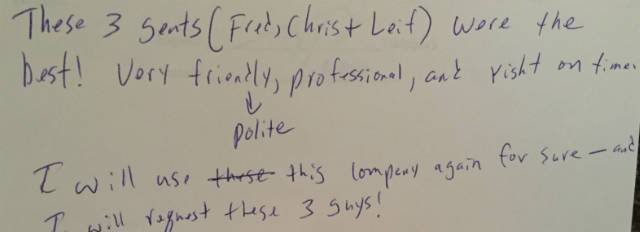 These 3 gents (Fred, Chris + Leif) were the
best! Very friendly, professional, and right on time.
polite
I will use these this company again for sure — and
I will request these 3 guys!